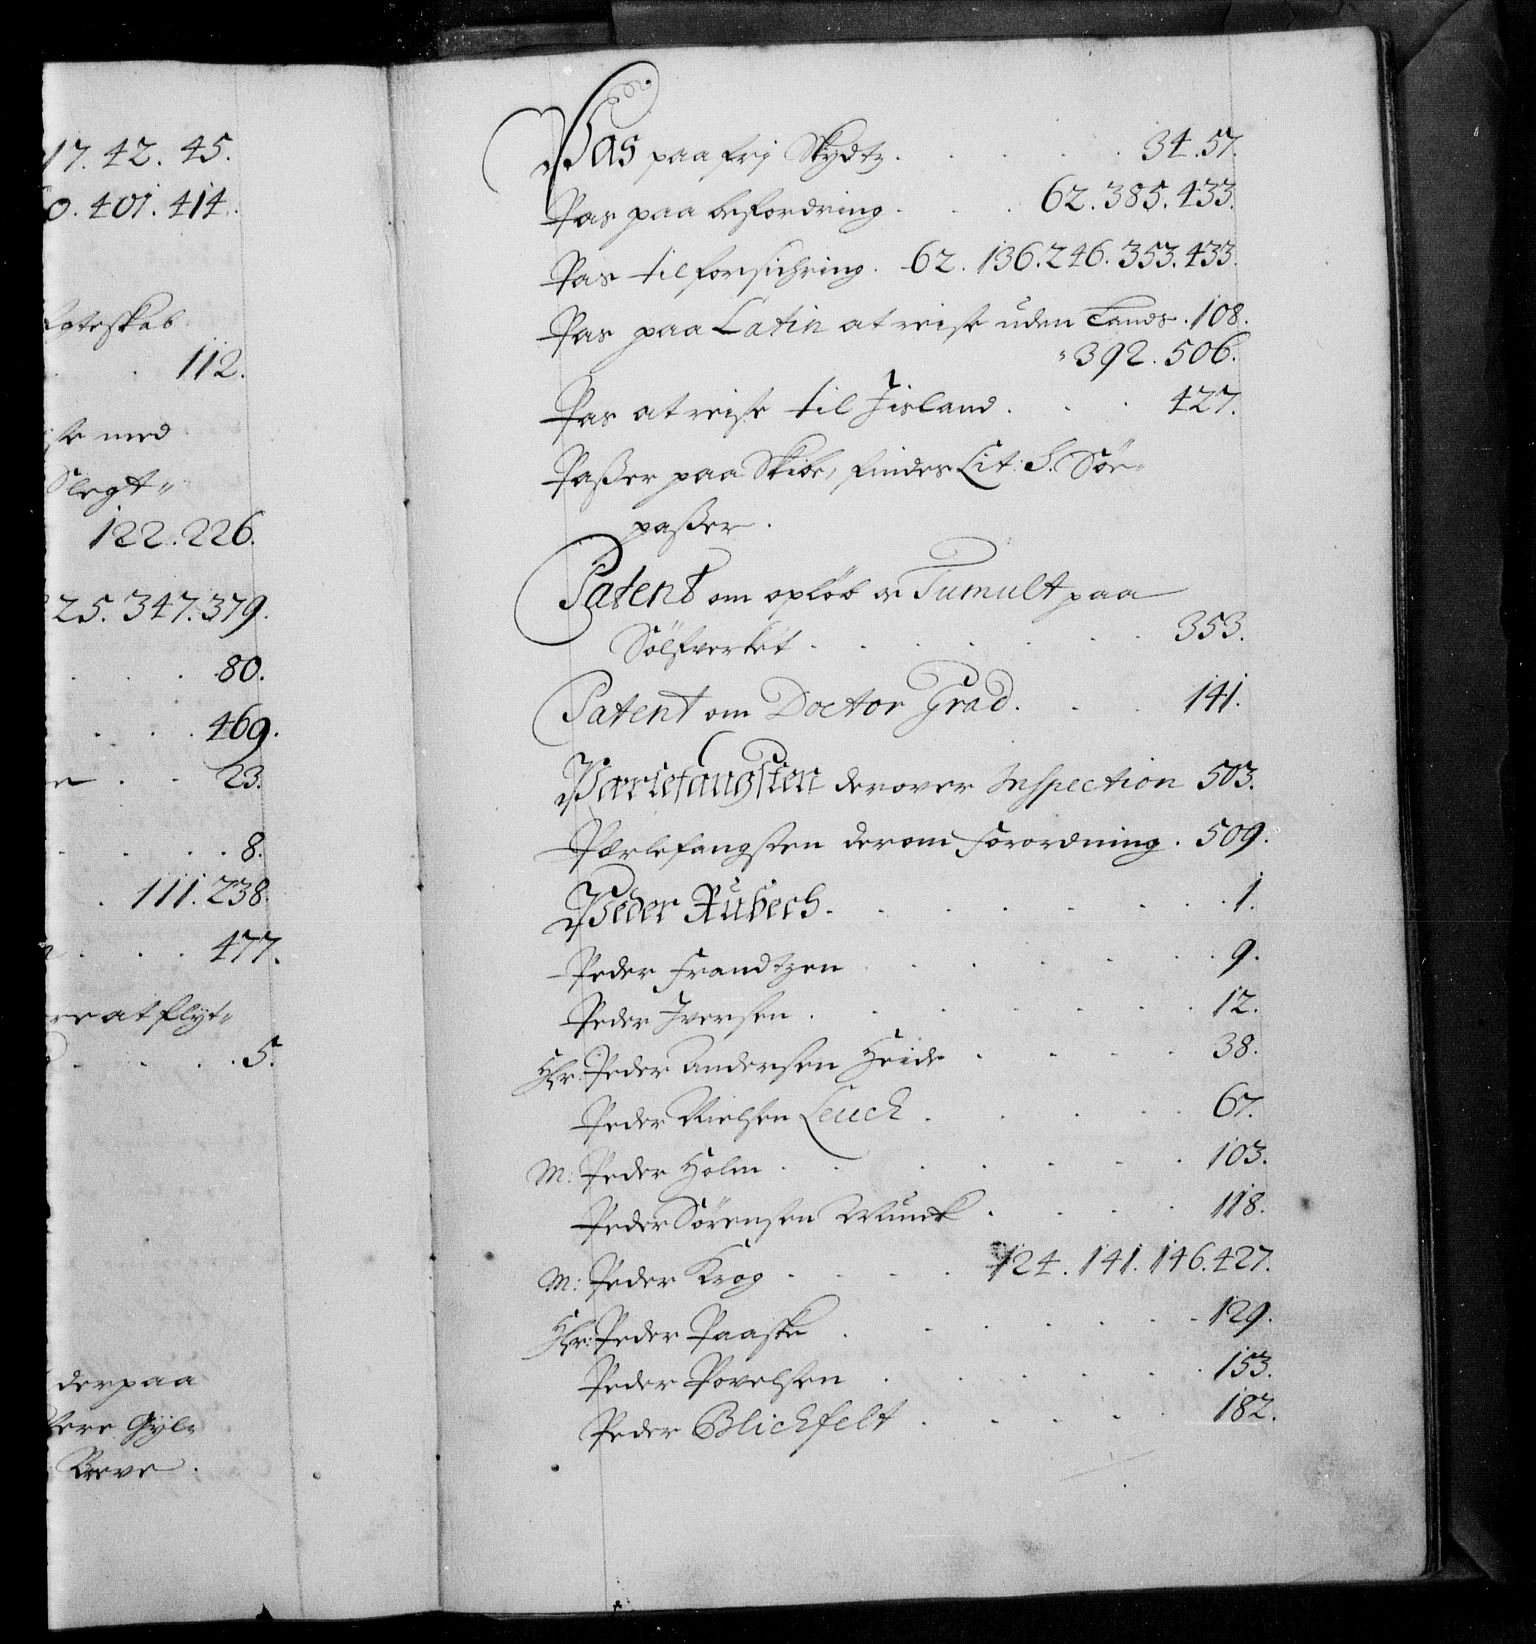 17. 42. 45.
0. 401. 414.
112.
med
Slegt„
122. 226.
25. 347. 379.
80.
469.
23.
8.
111. 238.
477.
at flyt„
5.
derpaa
Gyl„
Breve.
Pas paa frj Skydtz. 34. 57.
Pas paa befordring. 62. 385. 433.
Pas til forsichring. 62. 136. 246. 353. 433.
Pas paa Latin at reise uden Lands. 108.
„392. 506.
Pas at reise til Jisland. 427.
Paßer paa Skibe, findes Lit: S. Söe„
paßer.
Patent om oplöb oc Tumult paa
Sölfverket. 353.
Patent om Doctor Grad. 141.
Pærlefangsten derover Inspection 503.
Pærlefangsten derom Forordning. 509.
Peder Rubech. 1.
Peder Frandtzen 9.
Peder Iversen. 12.
Hr: Peder Andersen Heide 38.
Peder Nielsen Leuch. 67.
M: Peder Holm. 103.
Peder Sörensen Munck. 118.
M: Peder Krog. 124. 141. 146. 427.
Hr: Peder Paaske. 129.
Peder Povelsen. 153.
Peder Blichfelt. 182.